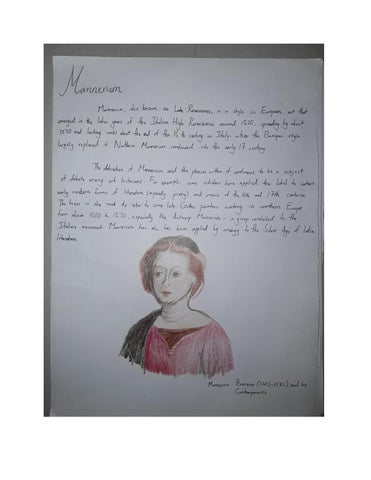 Mannerism
Mannerism, also known as Late Renaissance, is a style in European art that
emerged in the later years of the Italian High Renaissance around 1520, spreading by about
1530 and lasting until about the end of the 16th century in Italy, when the Baroque style
largely replaced it. Northern Mannerism continued into the early 17th century
The definition of Mannerism and the phases within it continues to be a subject
of debate among art historians. For example, some scholars have applied the label to certain
early modern forms of literature (especially poetry) and music of the 16th and 17th centuries
The term is also used to refer to some late Gothic painters working in northern Europe
from about 1500 to 1530, especially the Antwerp Mannerists - a group unrelated to the
Italian movement. Mannerism has also been applied by analogy to the Silver Age of Latin
literature.
Mannerism Bronzino (1503-1572) and his
Contemporaries